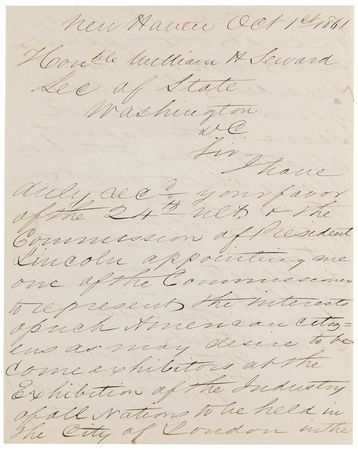 New Haven Oct 1st 1861
Honble William H Seward
Sec of State
Washington
DC
Sir
I have
duly recd your favor
of the 24th ult & the
Commission of President
Lincoln appointing me
one of the Commissioners
to represent the interests
of such American citiz=
ens as may desire to be=
come exhibitors at the
Exhibition of the Industry
of all Nations to be held in
the City of London in the